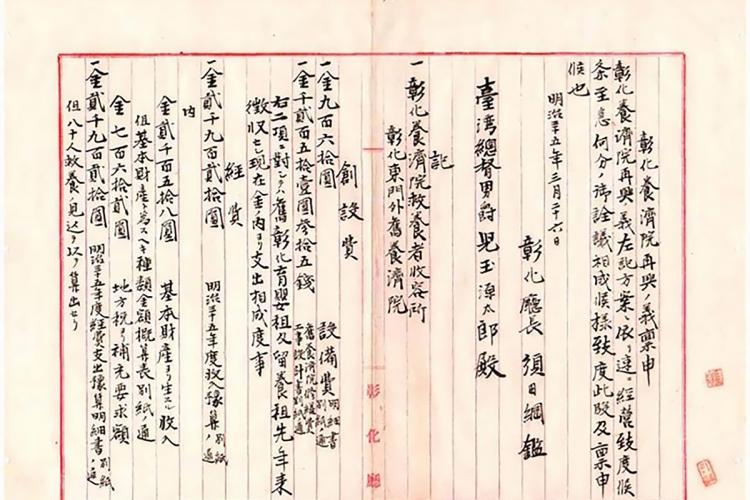 彰化養濟院再興ノ義稟申
彰化養濟院再興義左記方案ニ依リ速ニ經營致度候
条至急何分ノ御詮議相成候様致度此段及稟申
候也
明治三十五年三月二十六日
彰化廳長 須田綱鑑
臺湾總督男爵 児玉源太郎殿
記
一彰化養濟院救養者收容所
彰化東門外舊養濟院
創設費
一金九百六拾圓 設備費 明細書別紙ノ通
一金千貳百五拾壹圓參拾五錢 舊養濟院修繕費 工事設計書別紙ノ通
右二項ニ對シテハ舊彰化育嬰租及留養租先年来
徴収セシ現在金ノ内ヨリ支出相成度事
經費
一金貳千九百貳拾圓 明治三十五年度収入豫算 別紙ノ通
内
金貳千百五拾八圓 基本財産ヨリ生スル収入
但基本財産ト為スヘキ種類金額概算表別紙ノ通
金七百六拾貳圓 地方税ヨリ補充要求額
一金貳千九百貳拾圓 明治三十五年度経費支出豫算明細書 別紙ノ通
但八十人救養ノ見込ヲ以テ算出セリ
彰化廳